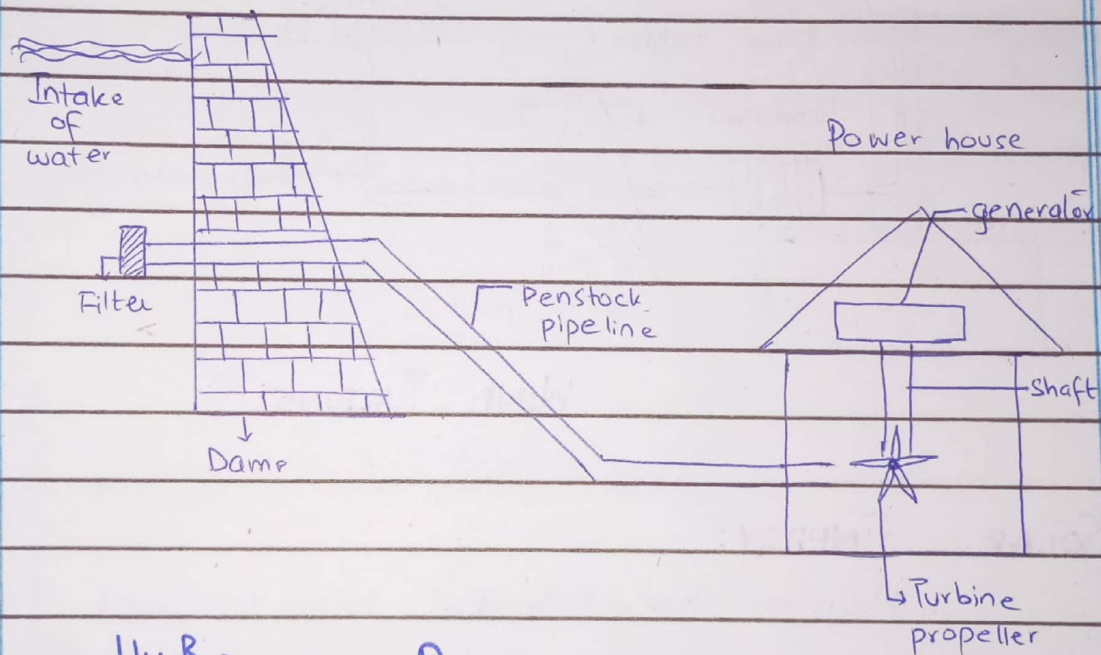 Intake
of
water
Power house
generator
Filter
Penstock
pipeline
Shaft
Damp
Turbine
propeller